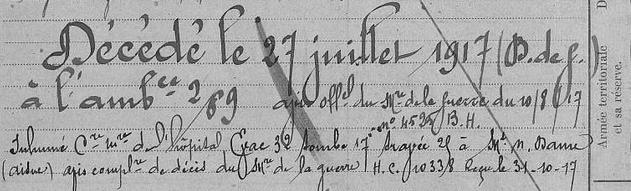 Décédé le 27 juillet 1917 (B. de g.
à l'amb ce 2/69 avis off el du M re de la guerre du 10/8/17
n° 4595 B. H.
Inhumé C re m re de l'hôpital Carré 32 tombe 17 travée 29 à M t N. Dame
(aisne) avis compl re de décès du M re de la guerre H. C. 10338 Reçu le 31-10-17
Armée territoriale
et sa réserve.